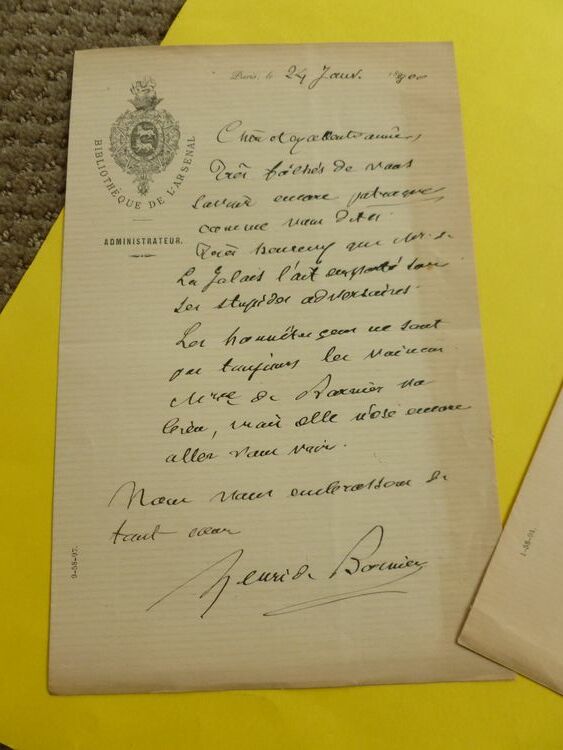 Paris, le 24 Janv. 1900
BIBLIOTHÈQUE DE L'ARSENAL
ADMINISTRATEUR.
Chère et excellente amie,
Très fâchés de vous
savoir encore patraque,
comme vous dites.
Très heureux que Mr de
La l'ait emporté sur
ses stupides adversaires.
Les honnêtes gens ne sont
pas toujours les vaincus.
Mme de Bornier va
bien, mais elle n'ose encore
aller vous voir.
Nous vous embrassons de
tout cœur
Henri de Bornier
9-58-97.
1-58-93.